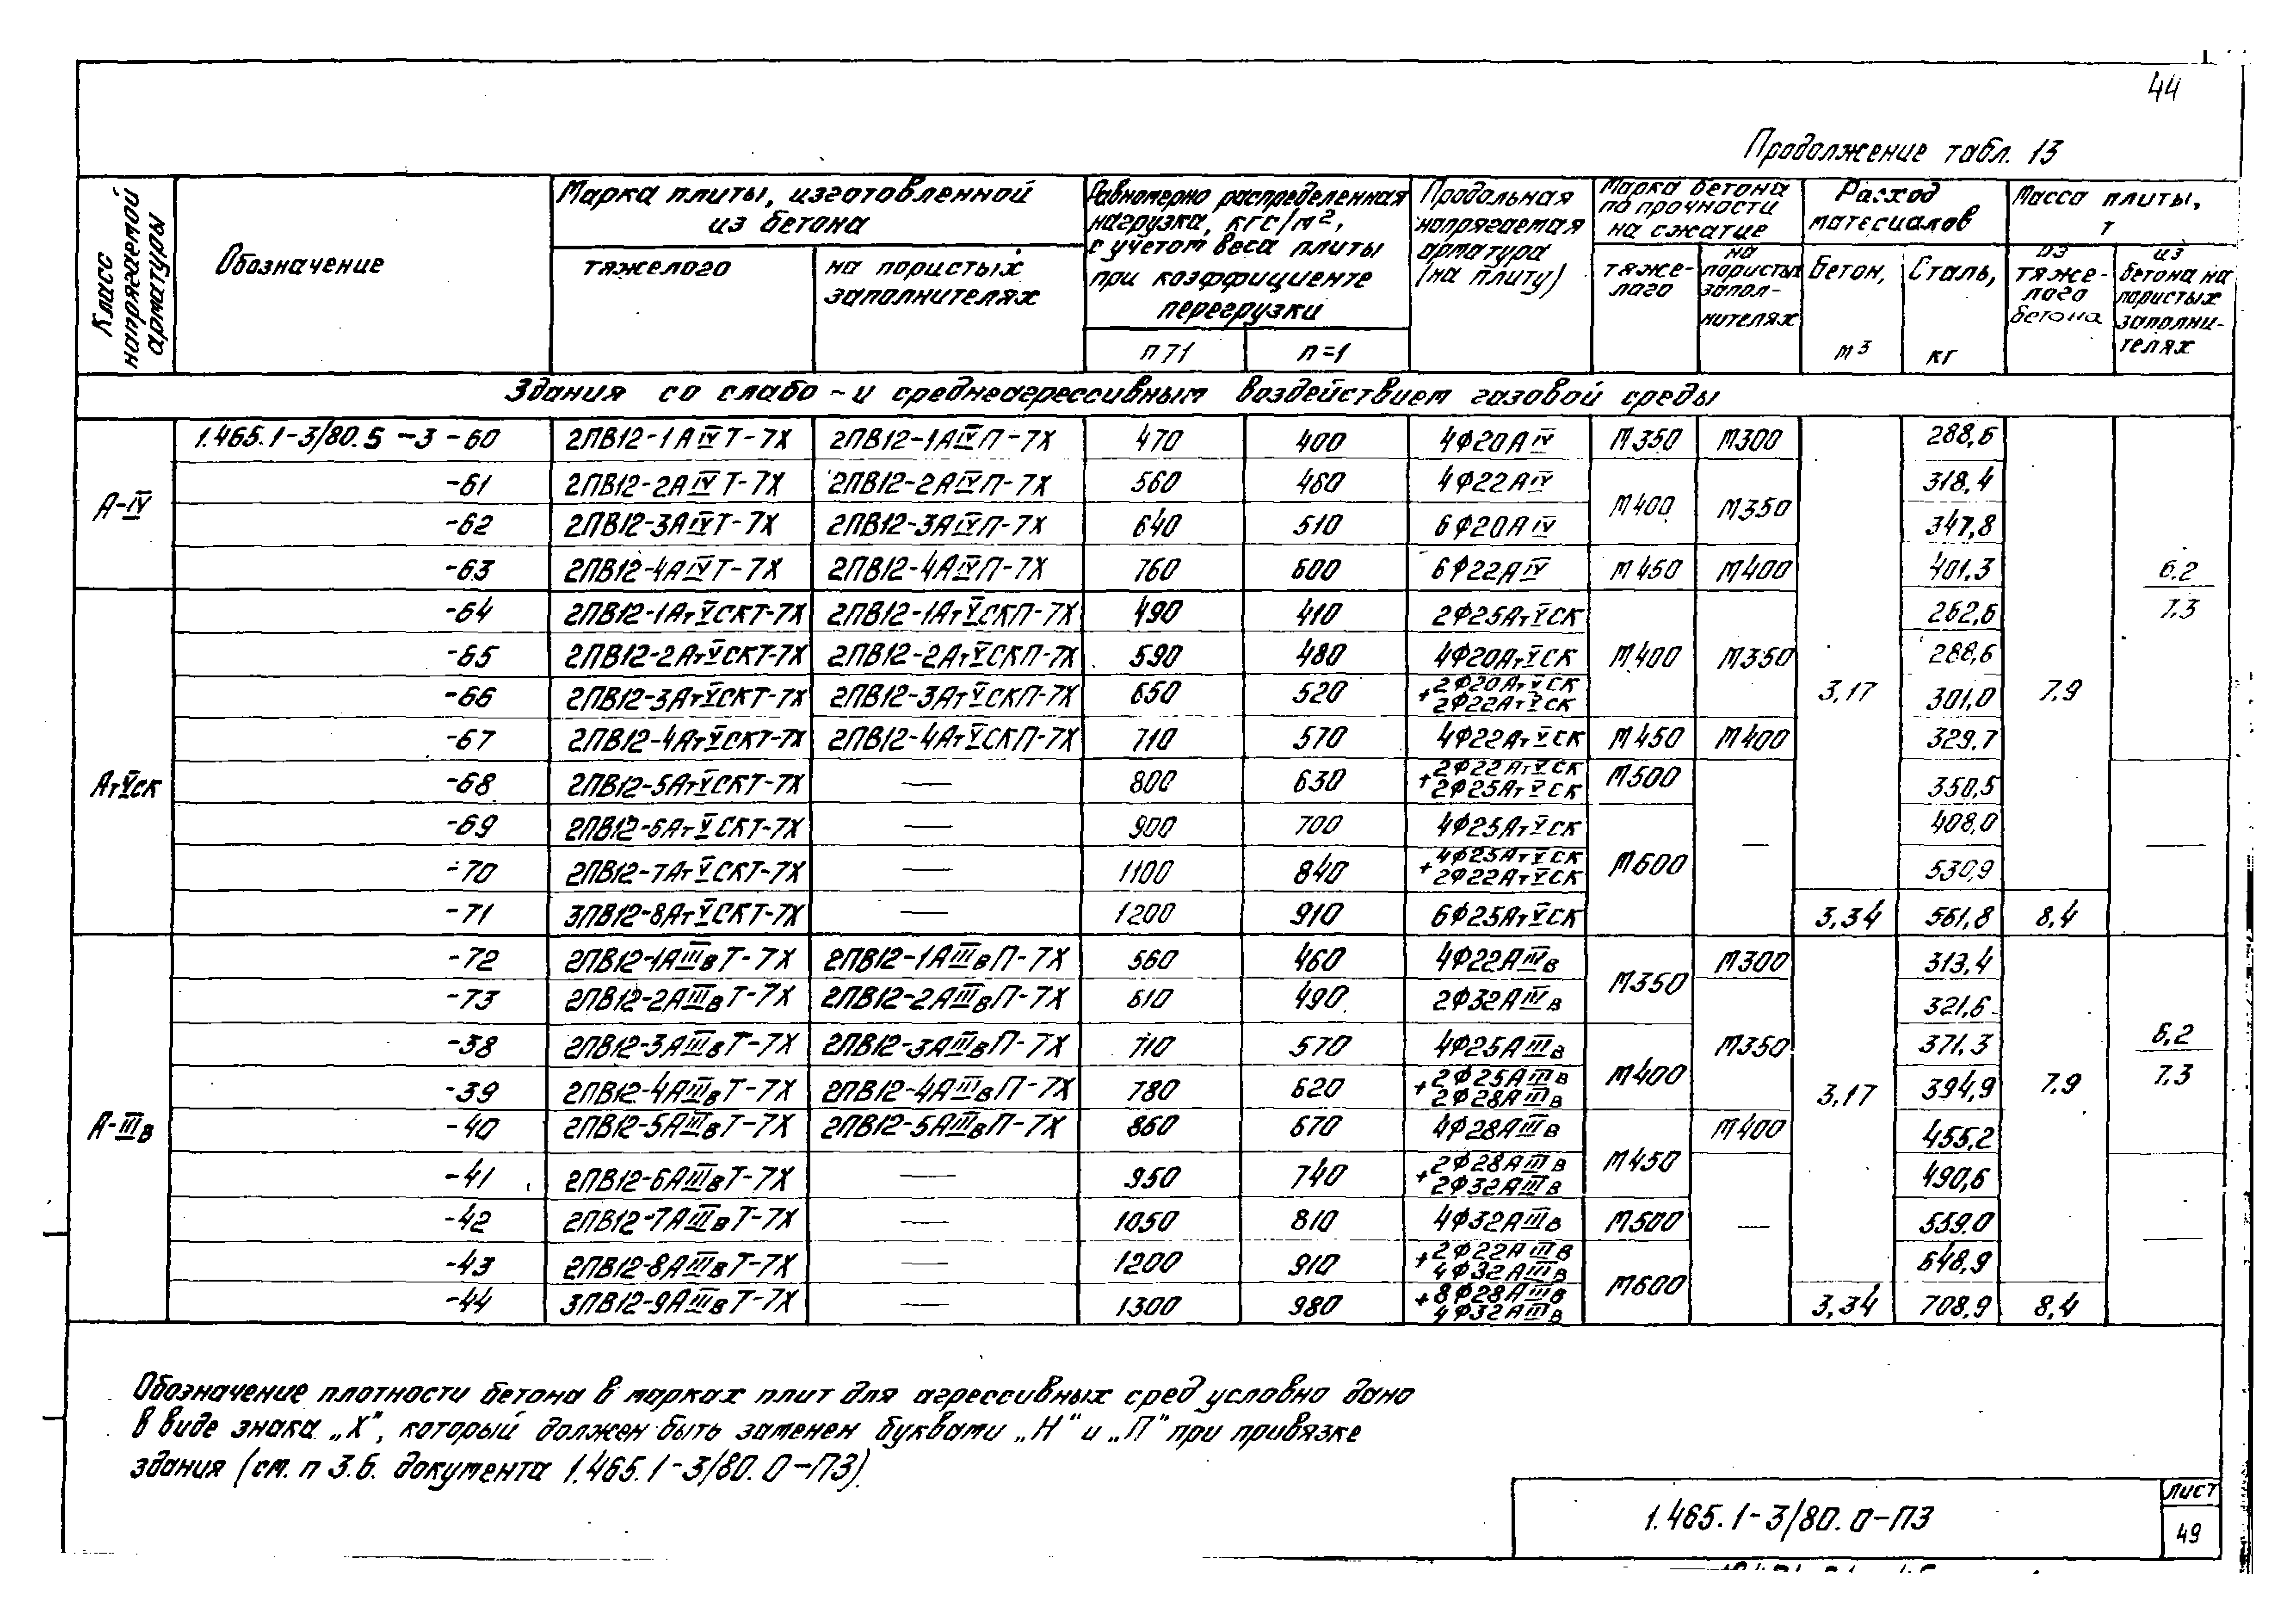 44
Продолжение табл. 13
Класс напрягаемой арматуры
Обозначение
Марка плиты, изготовленной из бетона
тяжелого
на пористых заполнителях
Равномерно распределенная нагрузка, кгс/м², с учетом веса плиты при коэффициенте перегрузки
n>1
n=1
Продольная напрягаемая арматура (на плиту)
Марка бетона по прочности на сжатие
тяже-лого
на пористых запол-нителях
Расход материалов
Бетон, м³
Сталь, кг
Масса плиты, т
из тяже-лого бетона
из бетона на пористых заполни-телях
Здания со слабо- и среднеагрессивным воздействием газовой среды
А-IV
1.465.1-3/80.5 -3 -60 2ПВ12-1АIVТ-7Х 2ПВ12-1АIVП-7Х 470 400 4Ф20АIV М350 М300 288,6
-61 2ПВ12-2АIVТ-7Х 2ПВ12-2АIVП-7Х 560 460 4Ф22АIV М400 М350 318,4
-62 2ПВ12-3АIVТ-7Х 2ПВ12-3АIVП-7Х 640 510 6Ф20АIV 347,8
-63 2ПВ12-4АIVТ-7Х 2ПВ12-4АIVП-7Х 760 600 6Ф22АIV М450 М400 401,3 6,2/7,3
АтVСК
-64 2ПВ12-1АтVСКТ-7Х 2ПВ12-1АтVСКП-7Х 490 410 2Ф25АтVСК 262,6
-65 2ПВ12-2АтVСКТ-7Х 2ПВ12-2АтVСКП-7Х 590 480 4Ф20АтVСК М400 М350 288,6
-66 2ПВ12-3АтVСКТ-7Х 2ПВ12-3АтVСКП-7Х 650 520 2Ф20АтVСК + 2Ф22АтVСК 3,17 301,0 7,9
-67 2ПВ12-4АтVСКТ-7Х 2ПВ12-4АтVСКП-7Х 710 570 4Ф22АтVСК М450 М400 329,7
-68 2ПВ12-5АтVСКТ-7Х — 800 630 2Ф22АтVСК + 2Ф25АтVСК М500 350,5
-69 2ПВ12-6АтVСКТ-7Х — 900 700 4Ф25АтVСК — 408,0 —
-70 2ПВ12-7АтVСКТ-7Х — 1100 840 4Ф25АтVСК + 2Ф22АтVСК М600 530,9
-71 3ПВ12-8АтVСКТ-7Х — 1200 910 6Ф25АтVСК 3,34 561,8 8,4
А-IIIв
-72 2ПВ12-1АIIIвТ-7Х 2ПВ12-1АIIIвП-7Х 560 460 4Ф22АIIIв М350 М300 313,4
-73 2ПВ12-2АIIIвТ-7Х 2ПВ12-2АIIIвП-7Х 610 490 2Ф32АIIIв 321,6
-38 2ПВ12-3АIIIвТ-7Х 2ПВ12-3АIIIвП-7Х 710 570 4Ф25АIIIв М400 М350 371,3 6,2/7,3
-39 2ПВ12-4АIIIвТ-7Х 2ПВ12-4АIIIвП-7Х 780 620 2Ф25АIIIв + 2Ф28АIIIв 3,17 394,9 7,9
-40 2ПВ12-5АIIIвТ-7Х 2ПВ12-5АIIIвП-7Х 860 670 4Ф28АIIIв М400 455,2
-41 2ПВ12-6АIIIвТ-7Х — 950 740 2Ф28АIIIв + 2Ф32АIIIв М450 490,6
-42 2ПВ12-7АIIIвТ-7Х — 1050 810 4Ф32АIIIв М500 — 559,0 —
-43 2ПВ12-8АIIIвТ-7Х — 1200 910 2Ф22АIIIв + 4Ф32АIIIв М600 648,9
-44 3ПВ12-9АIIIвТ-7Х — 1300 980 8Ф28АIIIв + 4Ф32АIIIв 3,34 708,9 8,4
Обозначение плотности бетона в марках плит для агрессивных сред условно дано
в виде знака „Х", который должен быть заменен буквами „Н" и „П" при привязке
здания (см. п 3.6. документа 1.465.1-3/80.0-ПЗ).
1.465.1-3/80.0-ПЗ
лист
49